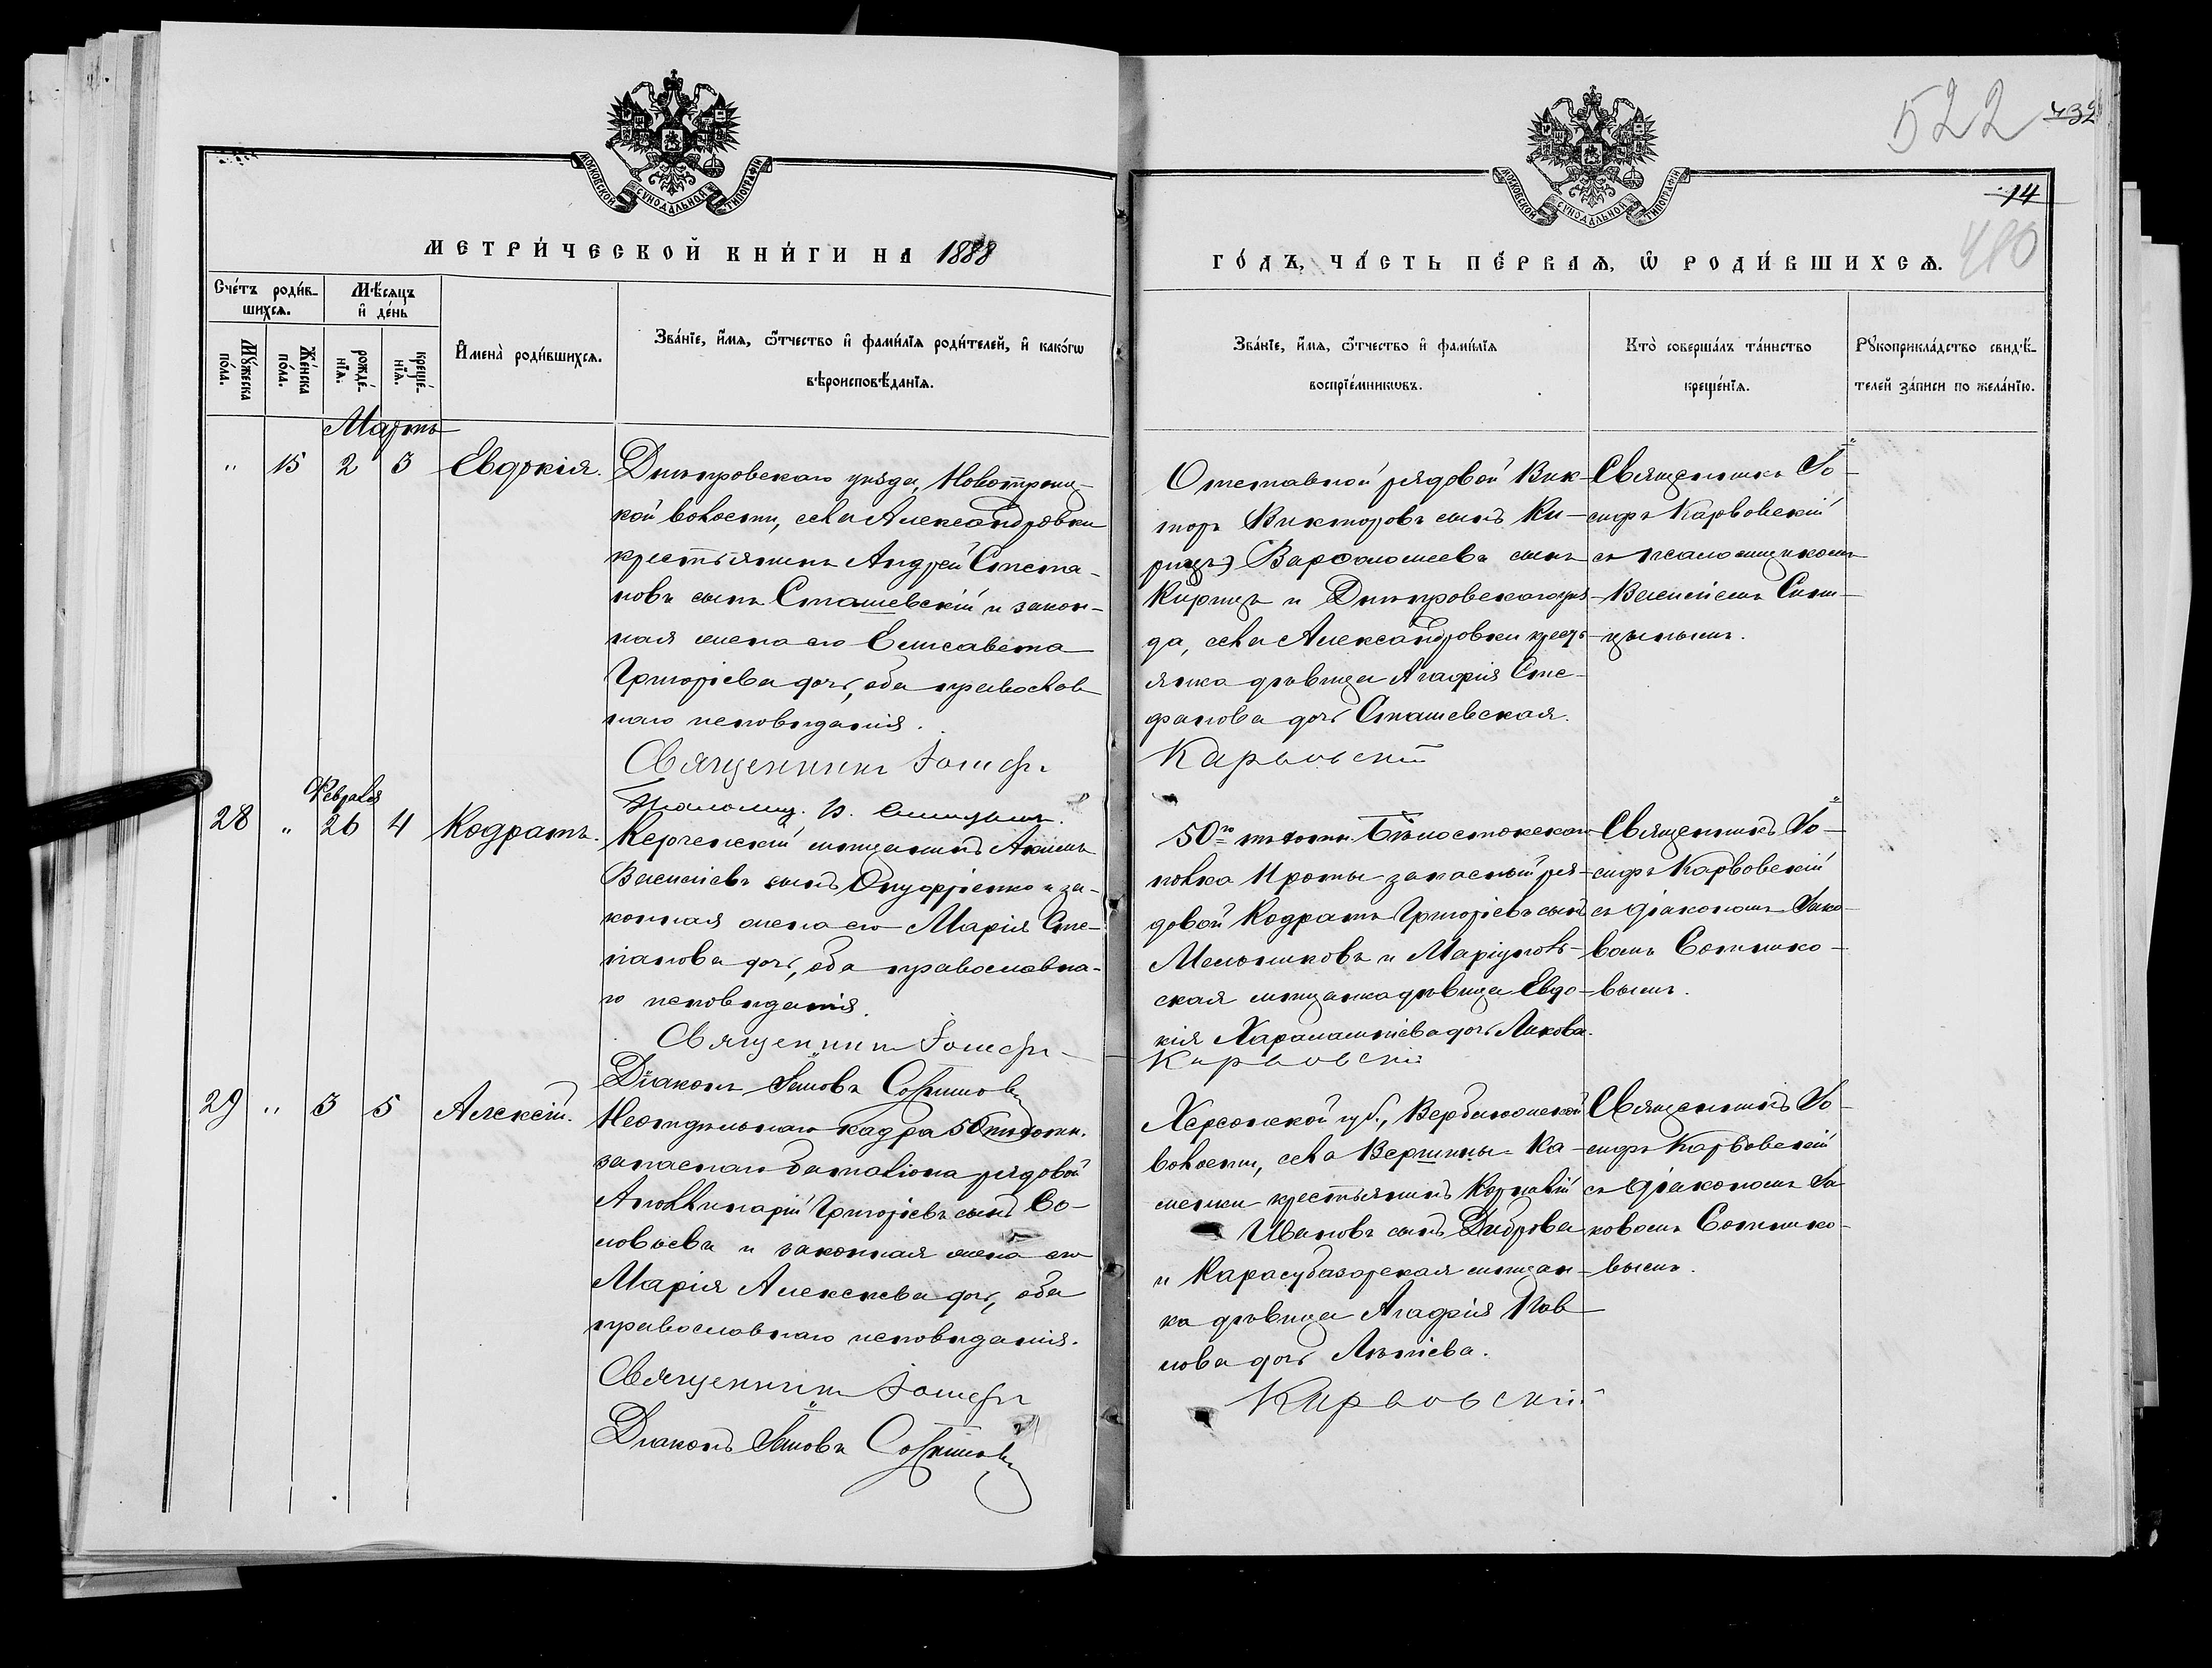 522
432
14
480
МОСКОВСКОЙ СѴНОДАЛЬНОЙ ТИПОГРАФІИ
МОСКОВСКОЙ СѴНОДАЛЬНОЙ ТИПОГРАФІИ
МЕТРИ́ЧЕСКОЙ КНИ́ГИ НА 1888
ГО́ДЪ, ЧА́СТЬ ПЕ́РВАѦ, Ѡ РОДИ́ВШИХСѦ.
Сче́тъ роди́в-
шихсѧ.
Мѣ́сяцъ
и де́нь
Мꙋ́жеска по́ла.
Же́нска по́ла.
рожде́-нїѧ.
креще́-нїѧ.
Имена̀ роди́вшихсѧ.
Зва́нїе, и́мѧ, ѻ҆́тчество и фами́лїѧ роди́телей, и како́гѡ
вѣроисповѣ́данїѧ.
Зва́нїе, и́мѧ, ѻ҆́тчество и фами́лїѧ
воспрїе́мникѡвъ.
Кто̀ соверша́лъ та́инство
креще́нїѧ.
Рꙋкоприкла́дство свидѣ́-
телей за́писи по жела́нїю.
Мартъ
" 15 2 3 Евдокія.
Днѣпровскаго уѣзда, Новотроиц-
кой волости, села Александровки
крестьянинъ Андрей Степа-
новъ сынъ Сташевскій и закон-
ная жена его Елисавета
Григоріева дочь, оба православ-
наго исповѣданія.
Священникъ Іосифъ
Псаломщ. В. Синицынъ.
Отставной рядовой Вик-
торъ Викторовъ сынъ Ки-
рицъ) Варѳоломеевъ сынъ
Кирицъ и Днѣпровскаго уѣз-
да, села Александровки кресть-
янка дѣвица Агафія Сте-
фанова дочь Сташевская.
Карвовскій
Священникъ Іо-
сифъ Карвовскій
съ псаломщикомъ
Василіемъ Сини-
цынымъ.
Февраля
28 " 26 4 Кодратъ.
Керченскій мѣщанинъ Акимъ
Василіевъ сынъ Онуфріенко и за-
конная жена его Марія Сте-
панова дочь, оба православна-
го исповѣданія.
Священникъ Іосифъ
Діаконъ Іаковъ Сотников
50го пѣхотн. Бѣлостокскаго
полка роты запасный ря-
довой Кодратъ Григоріевъ сынъ
Мельниковъ и Маріуполь-
ская мѣщанка дѣвица Евдо-
кія Харалампіева дочь Ликова.
Карвовскій
Священникъ Іо-
сифъ Карвовскій
съ діакономъ Іако-
вомъ Сотнико-
вымъ.
29 " 3 5 Алексій.
Неотдѣльнаго кадра 50 пѣхотн.
запаснаго баталіона рядовой
Аполлинарій Григоріевъ сынъ Со-
ловьевъ и законная жена его
Марія Алексѣева дочь, оба
православнаго исповѣданія.
Священникъ Іосифъ
Діаконъ Іаковъ Сотников
Херсонской губ.,
волости, села Вершины-Ка-
менки крестьянинъ Корнилій
Ивановъ сынъ Диброва
и Карасубазарская мѣщан-
ка дѣвица Агафія Пав-
лова дочь
Карвовскій
Священникъ Іо-
сифъ Карвовскій
съ діакономъ Іа-
ковомъ Сотнико-
вымъ.